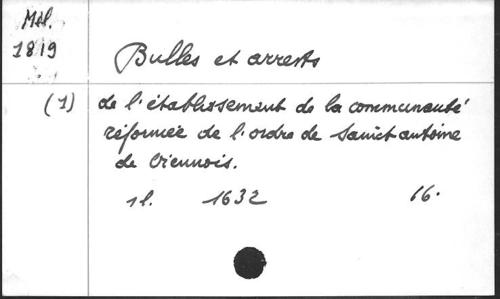 Mél.
1819
Bulles et arrests
(1) de l'établissement de la communauté
réformée de l'ordre de Sainct Antoine
de Viennois.
sl. 1632 16.